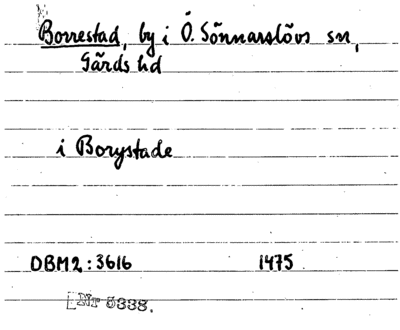 Borrestad, by i Ö. Sönnarslövs sn,
Gärds hd
i Borystade
DBM2:3616 1475
[Nr 5338.